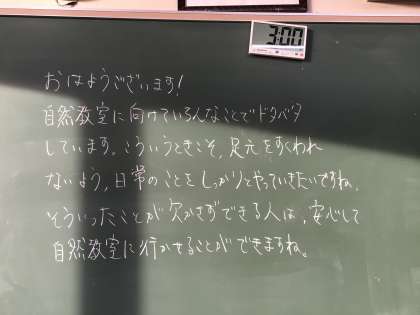 3:00
おはようございます!
自然教室に向けていろんなことでドタバタ
しています。こういうときこそ、足元をすくわれ
ないよう、日常のことをしっかりとやっていきたいですね。
そういったことが欠かさずできる人は、安心して
自然教室に行かせることができますね。